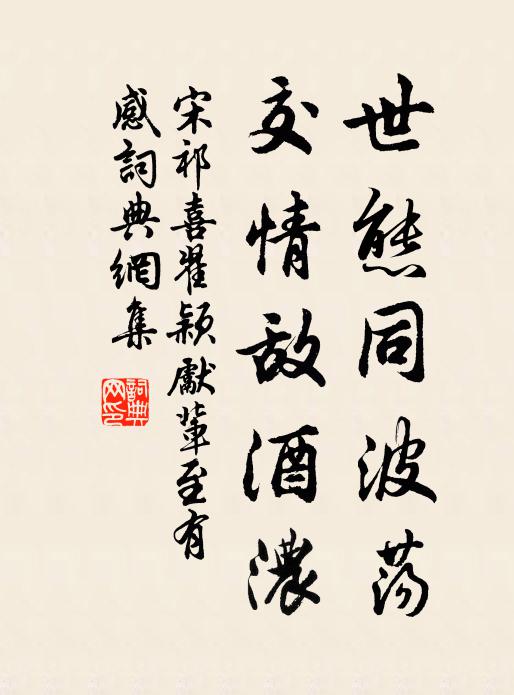 世態同波蕩
交情敵酒濃
宋祁喜翟穎獻輩至有
感詞典網集
詞典網印